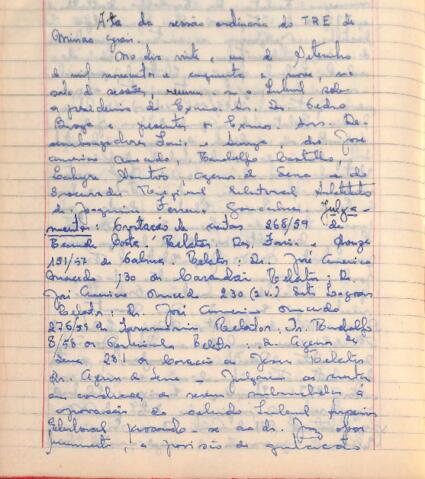 Ata da sessão ordinária do TRE de
Minas Gerais.
No dia vinte e um de Setembro
de mil novecentos e cinquenta e nove, na
sala de sessões, reuniu-se o Tribunal sob a
presidencia do Exmo. Sr. Des. Pedro
Braga e presentes os Exmos. Srs. De-
sembargadores Faria e Souza, drs. José
Americo Macedo, Rodolfo
Santos, Agenor de Sena e do
Procurador Regional Eleitoral Substituto
dr. Joaquim Ferreira Gonçalves. Julga-
mentos: Prestação de contas 268/59 de
Costa. Relator: Des. Faria e Souza
151/57 de Relator: Dr. José Americo
Macedo, 130 de Carandaí Relator: Dr.
José Americo Macedo 230 Sete Lagoas
Relator: Dr. José Americo Macedo
276/59 de Relator: Dr. Rodolfo
8/58 de Relator: Dr. Agenor de
Sena 281 de Coração de Jesus Relator
Dr. Agenor de Sena - Julgaram as contas
em condições de serem submetidas à
aprovação do colendo Tribunal Superior
Eleitoral ao dr. Juiz
a provisão de quitação